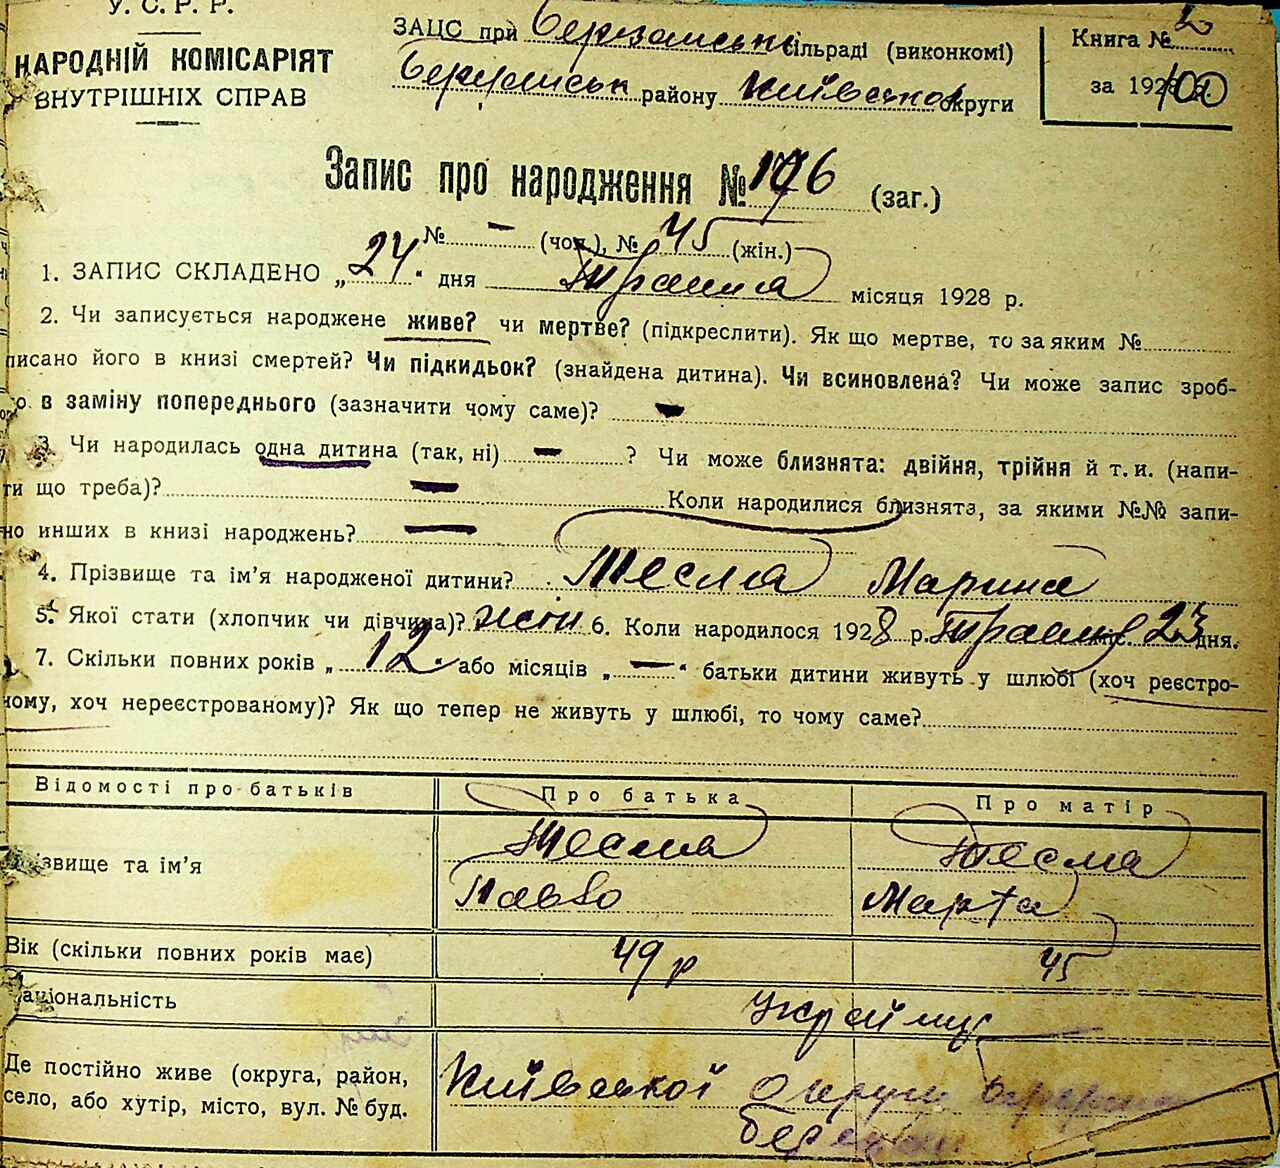 У. С. Р. Р.
НАРОДНІЙ КОМІСАРІЯТ
ВНУТРІШНІХ СПРАВ
ЗАЦС при Березанській сільраді (виконкомі)
Березанськ району Київської округи
Книга № 2
за 1928 р. 100
Запис про народження № 176 (заг.)
№ - (чол.), № 75 (жін.)
1. ЗАПИС СКЛАДЕНО „24" дня Травня місяця 1928 р.
2. Чи записується народжене живе? чи мертве? (підкреслити). Як що мертве, то за яким №
писано його в книзі смертей? Чи підкидьок? (знайдена дитина). Чи всиновлена? Чи може запис зроб-
о в заміну попереднього (зазначити чому саме)? -
3. Чи народилась одна дитина (так, ні) - ? Чи може близнята: двійня, трійня й т. и. (напи-
ти що треба)? - Коли народилися близнята, за якими №№ запи-
но инших в книзі народжень? -
4. Прізвище та ім'я народженої дитини? Тесла Марина
5. Якої стати (хлопчик чи дівчина)? жін 6. Коли народилося 1928 р. Травня міс. 23 дня.
7. Скільки повних років „12" або місяців „-" батьки дитини живуть у шлюбі (хоч реєстро-
ному, хоч нереєстрованому)? Як що тепер не живуть у шлюбі, то чому саме?
Відомості про батьків Про батька Про матір
ізвище та ім'я Тесла Павло Тесла Марта
Вік (скільки повних років має) 49 р 45
аціональність Українці
Де постійно живе (округа, район, село, або хутір, місто, вул. № буд. Київської округи